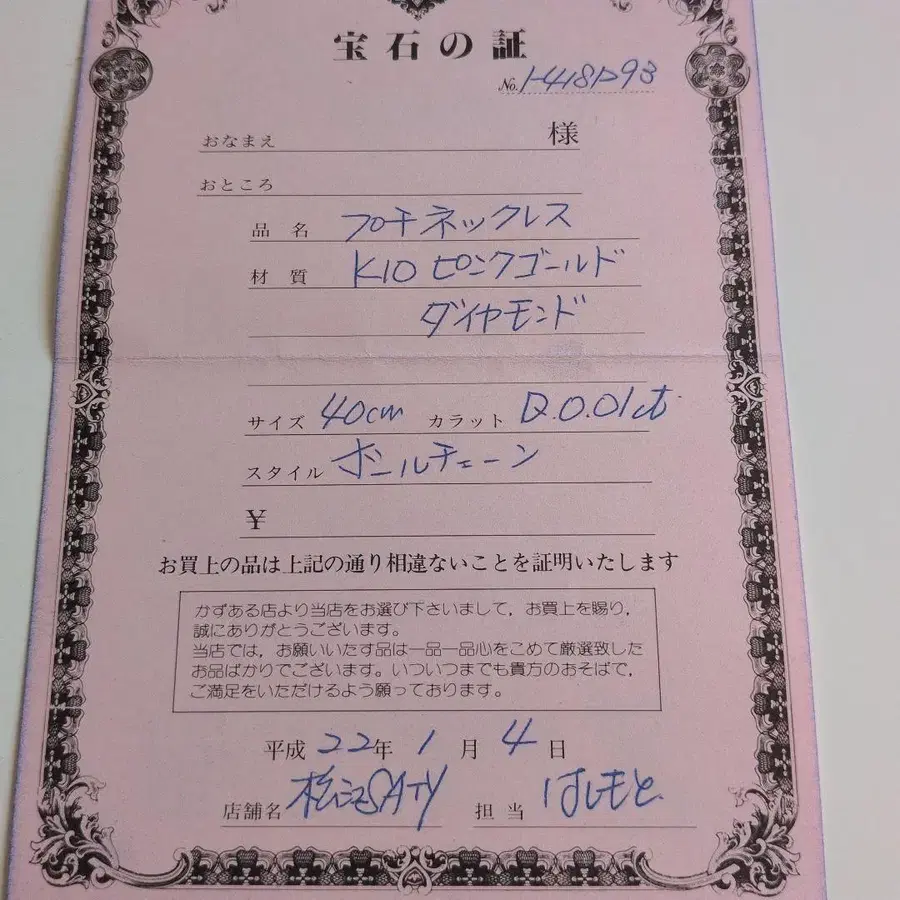 宝石の証
No. 1-4181-93
おなまえ 様
おところ
品名 プチネックレス
材質 K10 ピンクゴールド
ダイヤモンド
サイズ 40cm カラット D.0.01ct
スタイル ボールチェーン
¥
お買上の品は上記の通り相違ないことを証明いたします
かずある店より当店をお選び下さいまして，お買上を賜り，
誠にありがとうございます。
当店では，お願いいたす品は一品一品心をこめて厳選致した
お品ばかりでございます。いついつまでも貴方のおそばで，
ご満足をいただけるよう願っております。
平成22年1月4日
店舗名 松江SATY 担当 はしもと